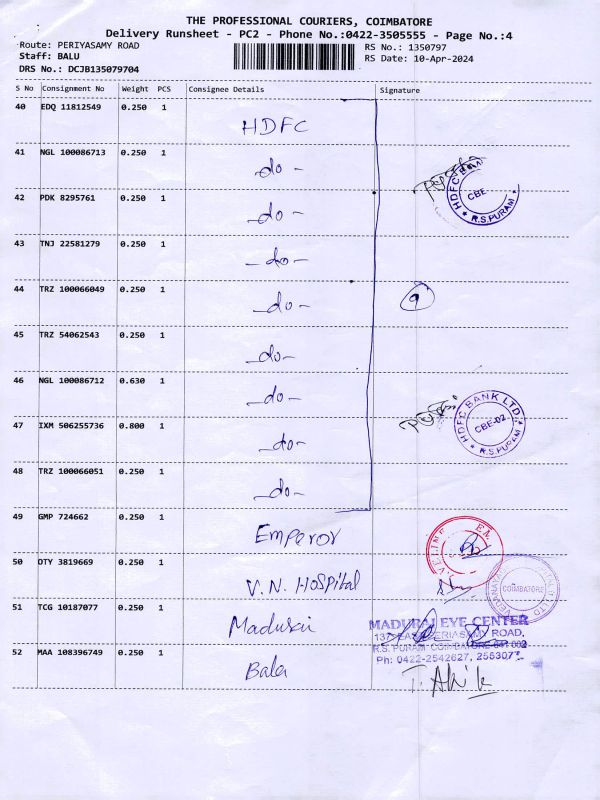 THE PROFESSIONAL COURIERS, COIMBATORE
Delivery Runsheet - PC2 - Phone No.:0422-3505555 - Page No.:4
Route: PERIYASAMY ROAD
RS No.: 1350797
Staff: BALU
RS Date: 10-Apr-2024
DRS No.: DCJB135079704
S No Consignment No Weight PCS Consignee Details Signature
40 EDQ 11812549 0.250 1 HDFC
41 NGL 100086713 0.250 1 -do-
HDFC BANK
CBE
R.S.PURAM
42 PDK 8295761 0.250 1 -do-
43 TNJ 22581279 0.250 1 -do-
44 TRZ 100066049 0.250 1 -do- 9
45 TRZ 54062543 0.250 1 -do-
46 NGL 100086712 0.630 1 -do-
HDFC BANK LTD.
CBE-02
R.S.PURAM
47 IXM 506255736 0.800 1 -do-
48 TRZ 100066051 0.250 1 -do-
49 GMP 724662 0.250 1 Emperor
50 OTY 3819669 0.250 1 V.N. Hospital
COIMBATORE
51 TCG 10187077 0.250 1 Madurai
MADURAI EYE CENTER
137, EAST PERIASAMY ROAD,
R.S. PURAM COIMBATORE-641 002
Ph: 0422-2542627,
52 MAA 108396749 0.250 1 Bala